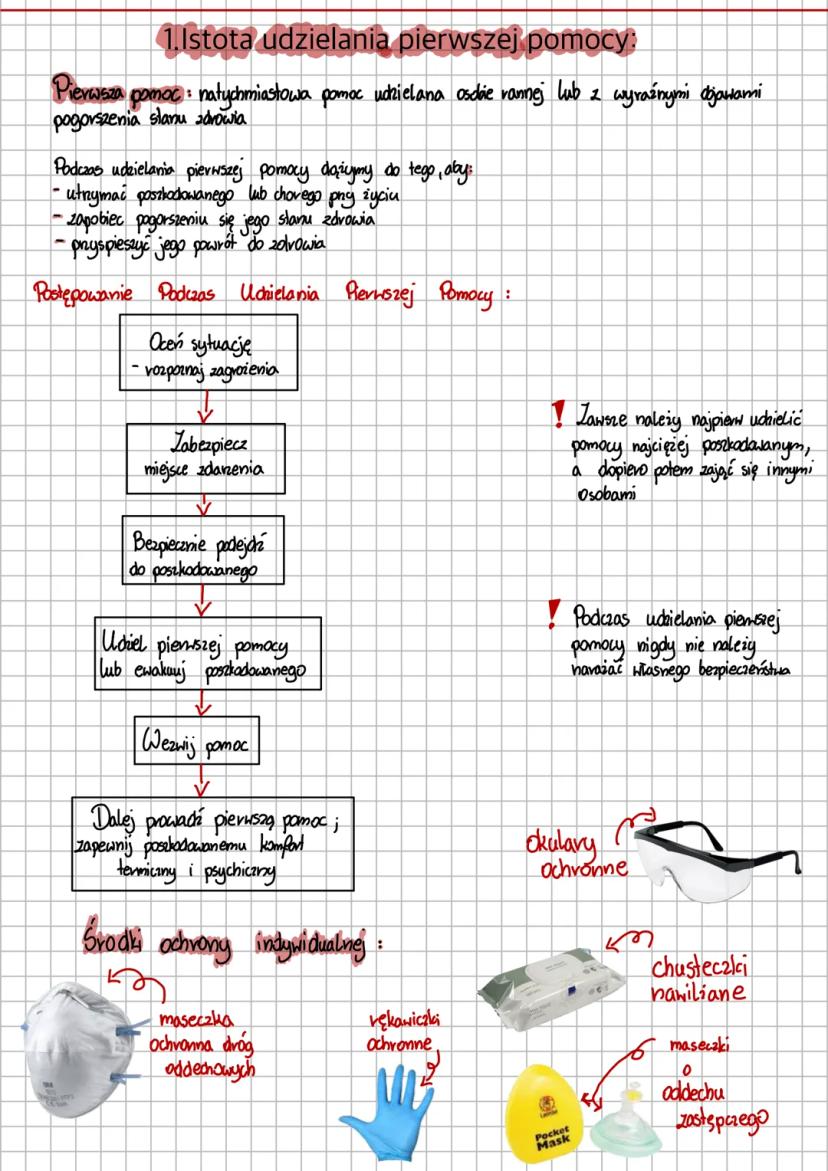 1.Istota udzielania pierwszej pomocy:
Pierwsza pomoc: natychmiastowa pomoc udzielana osobie rannej lub z wyraźnymi objawami
pogorszenia stanu zdrowia
Podczas udzielania pierwszej pomocy dążymy do tego, aby:
- utrzymać poszkodowanego lub chorego przy życiu
- zapobiec pogorszeniu się jego stanu zdrowia
- przyspieszyć jego powrót do zdrowia
Postępowanie Podczas Udzielania Pierwszej Pomocy:
Oceń sytuację
- rozpoznaj zagrożenia
Zabezpiecz
miejsce zdarzenia
Bezpiecznie podejdź
do poszkodowanego
Udziel pierwszej pomocy
lub ewakuuj poszkodowanego
Wezwij pomoc
Dalej prowadź pierwszą pomoc;
zapewnij poszkodowanemu komfort
termiczny i psychiczny
! Zawsze należy najpierw udzielić
pomocy najciężej poszkodowanym,
a dopiero potem zająć się innymi
osobami
! Podczas udzielania pierwszej
pomocy nigdy nie należy
narażać własnego bezpieczeństwa
okulary
ochronne
Środki ochrony indywidualnej:
maseczka
ochronna dróg
oddechowych
rękawiczki
ochronne
chusteczki
nawilżane
maseczki
o
oddechu
zastępczego
3M
Laerdal
Pocket
Mask